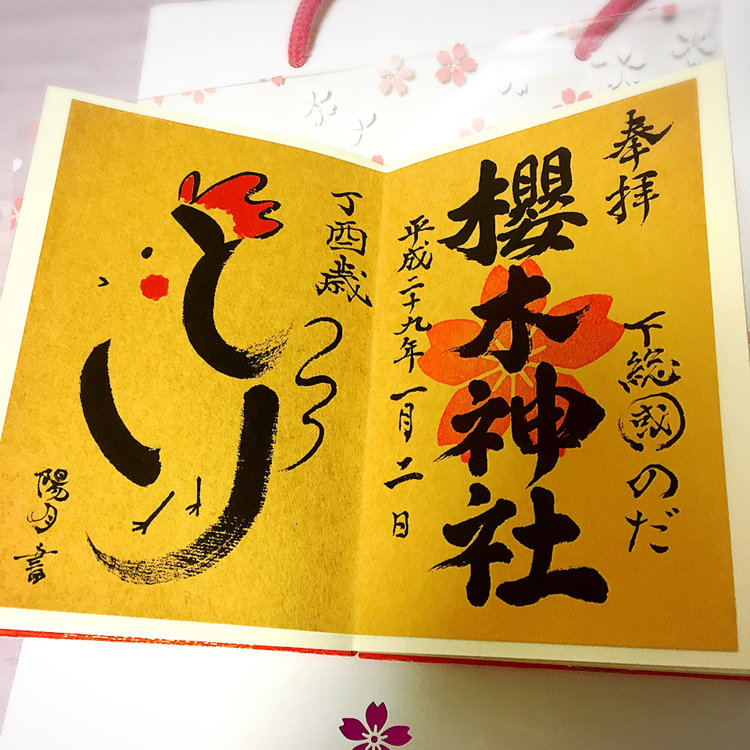 奉拝
下総國のだ
櫻木神社
平成二十九年一月二日
丁酉歳
とり
陽月書